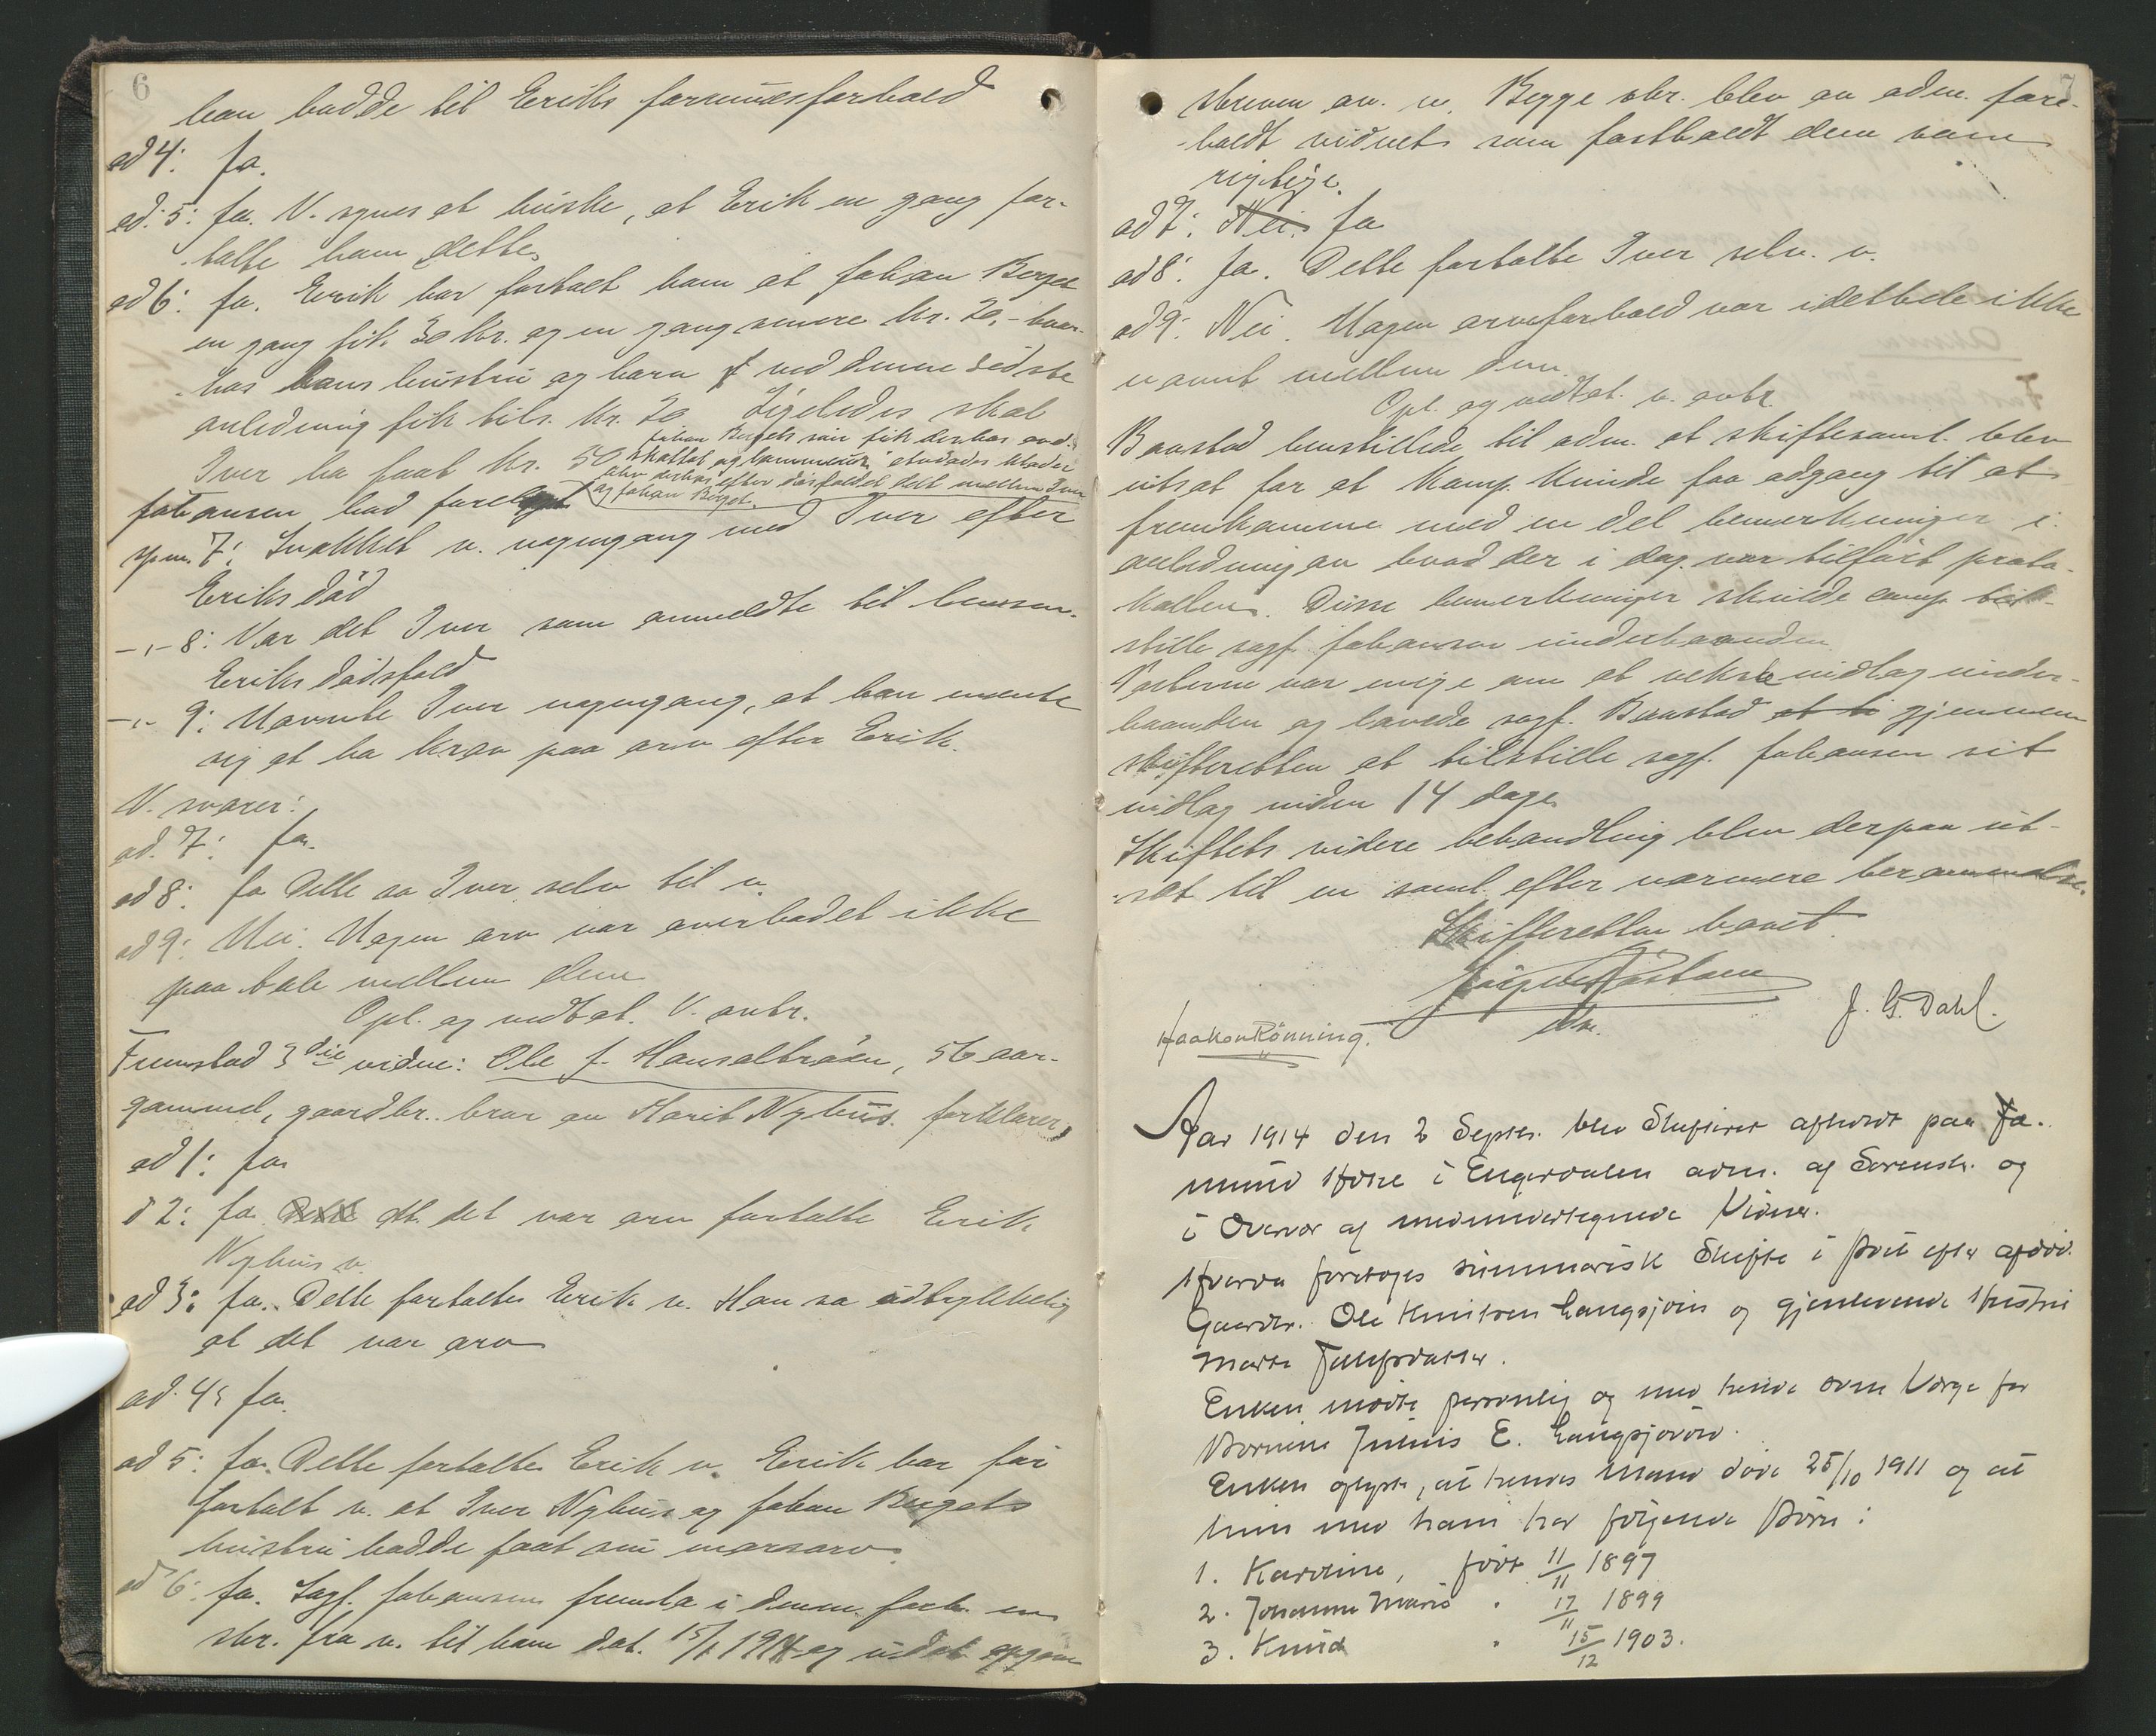 6
han hadde til Eriks formuesforhold
ad 4: Ja.
ad. 5: Ja. V. synes at huske, at Erik en gang for-
talte ham dette.
ad 6: Ja. Erik har fortalt ham at Johan Berget
en gang fik 30 Kr. og en gang senere Kr. 20,- hvor-
hos hans hustru og barn ved denne sidste
anledning fik tils. Kr. 20 Ligeledes skal
Iver ha faat Kr. 50
Johan Bergets søn fik derhos end.
skattol og kommode, etødødes klæder
blev derhos efter dødsfaldet delt mellem Iver
og Johan Berget.
Johansen lod forelægge
spm. 7: Snakket v. nogengang med Iver efter
Eriks død
-"- 8: Var det Iver som anmeldte til lensm.
Eriks dødsfald
-"- 9: Nævnte Iver nogengang, at han mente
sig at ha krav paa arv efter Erik.
V. svarer:
ad. 7: Ja.
ad 8: Ja Dette sa Iver selv til v.
ad 9: Nei. Nogen arv var overhodet ikke
paa tale mellem dem
Opl. og vedtat. V. avtr.
Fremstod 3die vidne: Ole J. Hanselbråten, 56 aar
gammel, gaardbr. bror av Marit Nyhus. forklarer,
ad 1: Ja
d 2: Ja at det var arv fortalte Erik
Nyhus v.
ad 3: Ja. Dette fortalte Erik v. Han sa udtrykkelig
at det var arv
ad. 4: Ja.
ad 5: Ja. Dette fortalte Erik v. Erik har før
fortalt v. at Iver Nyhus og Johan Bergets
hustru hadde faat sin morsarv.
ad 6: Ja. Sagf. Johansen fremla i denne forb. en
skr. fra v. til ham dat. 15/1 1914 og
7
skreven av v. Begge skr. blev av adm. fore-
holdt vidnet som fastholdt dem som
rigtige.
ad 7: Nei. Ja
ad 8: Ja. Dette fortalte Iver selv v.
ad 9: Nei. Nogen arveforhold var idethele ikke
nævnt mellem dem.
Opl. og vedtat. v. avtr.
Baastad henstillede til adm. at skiftesaml. blev
utsat for at Komp. kunde faa adgang til at
fremkomme med en del bemerkninger i
anledning av hvad der i dag var tilført proto-
kollen. Disse bemerkninger skulde comp. til-
stille sagf. Johansen underhaanden
Parterne var enige om at veksle indlæg under-
haanden og lovede sagf. Baastad at ti gjennem
skifteretten at tilstille sagf. Johansen sit
indlæg inden 14 dage
Skiftets videre behandling blev derpaa ut-
sat til en saml. efter nærmere berammelse.
Skifteretten hævet.
Haakon Rønning.
J. G. Dahl.
Aar 1914 den 2 Septbr. blev Skifteret afholdt paa Fæ-
mund Hotel i Engerdalen adm. af Sorenskr. og
i Overvær af medundertegnede Vidner.
Hvorda foretoges summarisk Skifte i Boet efter afdød.
Gaardbr. Ole Knutsen Langsjøen og gjenlevende Hustru
Marte
Enken mødte personlig og med hende som Værge for
Børnene Julius E. Langsjøvold.
Enken oplyste, at hendes Mand døde 25/10 1911 og at
hun med ham har følgende Børn:
1. Karoline, født 11/11 1897
2. Johanne Marie " 17/11 1899
3. Knud " 15/12 1903.